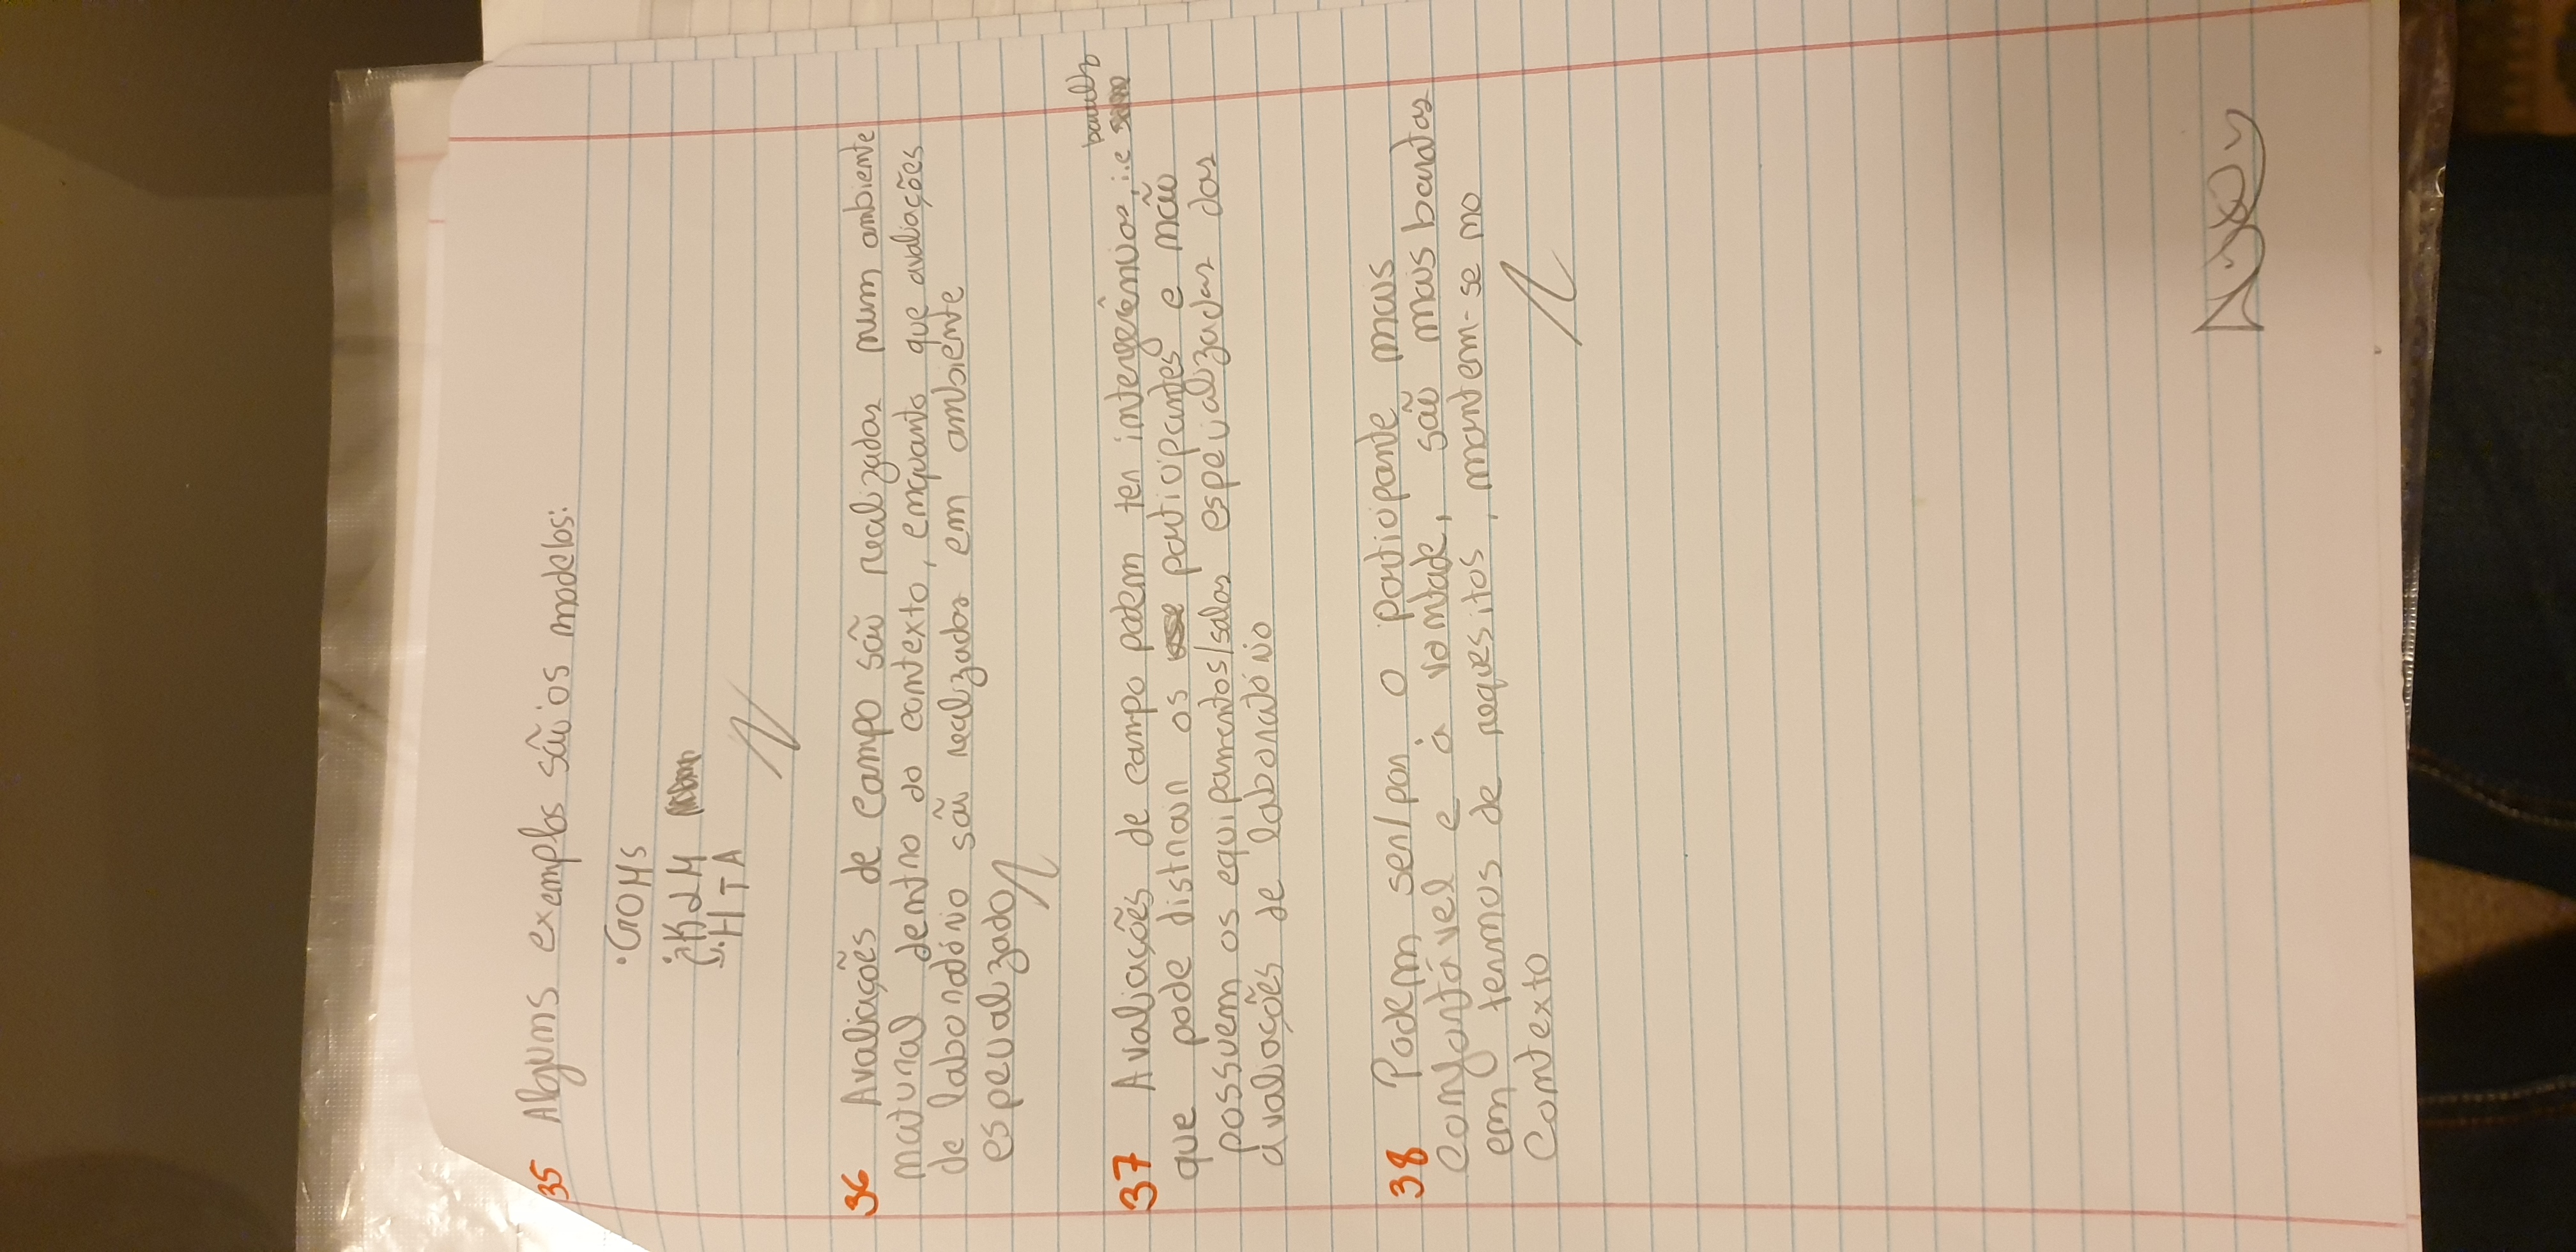 35 Alguns exemplos são os modelos:
· GOMS
· KLM
· HTA
36 Avaliações de campo são realizadas num ambiente
natural dentro do contexto, enquanto que avaliações
de laboratório são realizadas em ambiente
especializado
barulho
37 Avaliações de campo podem ter interferências, i.e
que pode distrair os participantes e não
possuem os equipamentos/salas especializadas das
avaliações de laboratório
38 Podem ser/por o participante mais
confortável e à vontade, são mais baratas
em termos de requesitos, mantem-se no
contexto